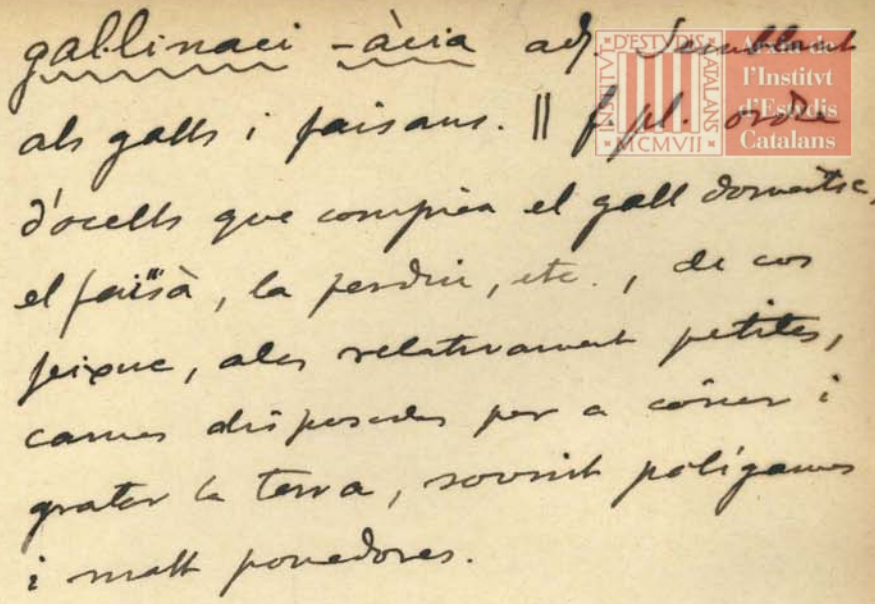 gal·linaci -àcia adj. Semblant
als galls i faisans. || f. pl. ordre
d'ocells que comprèn el gall domèstic,
el faisà, la perdiu, etc., de cos
feixuc, ales relativament petites,
cames disposades per a córrer i
gratar la terra, sovint polígames
i molt ponedores.
INSTITVT D'ESTVDIS CATALANS
MCMVII
Arxiu de
l'Institvt
d'Estvdis
Catalans